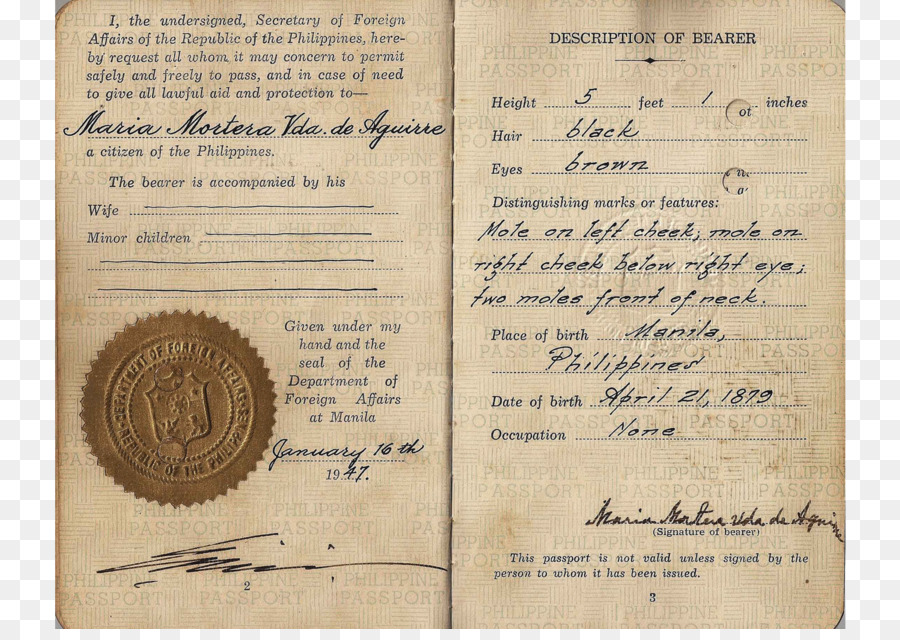 I, the undersigned, Secretary of Foreign
Affairs of the Republic of the Philippines, here-
by request all whom it may concern to permit
safely and freely to pass, and in case of need
to give all lawful aid and protection to—
Maria Mortera Vda. de Aguirre
a citizen of the Philippines.
The bearer is accompanied by his
Wife
Minor children
Given under my
hand and the
seal of the
Department of
Foreign Affairs
at Manila
January 16th
1947.
DEPARTMENT OF FOREIGN AFFAIRS
REPUBLIC OF THE PHILIPPINES
2
DESCRIPTION OF BEARER
Height 5 feet 1 inches
Hair black
Eyes brown
Distinguishing marks or features:
Mole on left cheek; mole on
right cheek below right eye;
two moles front of neck.
Place of birth Manila,
Philippines
Date of birth April 21, 1879
Occupation None
Maria Mortera Vda de Aguirre
(Signature of bearer)
This passport is not valid unless signed by the
person to whom it has been issued.
3
PHILIPPINE
PASSPORT